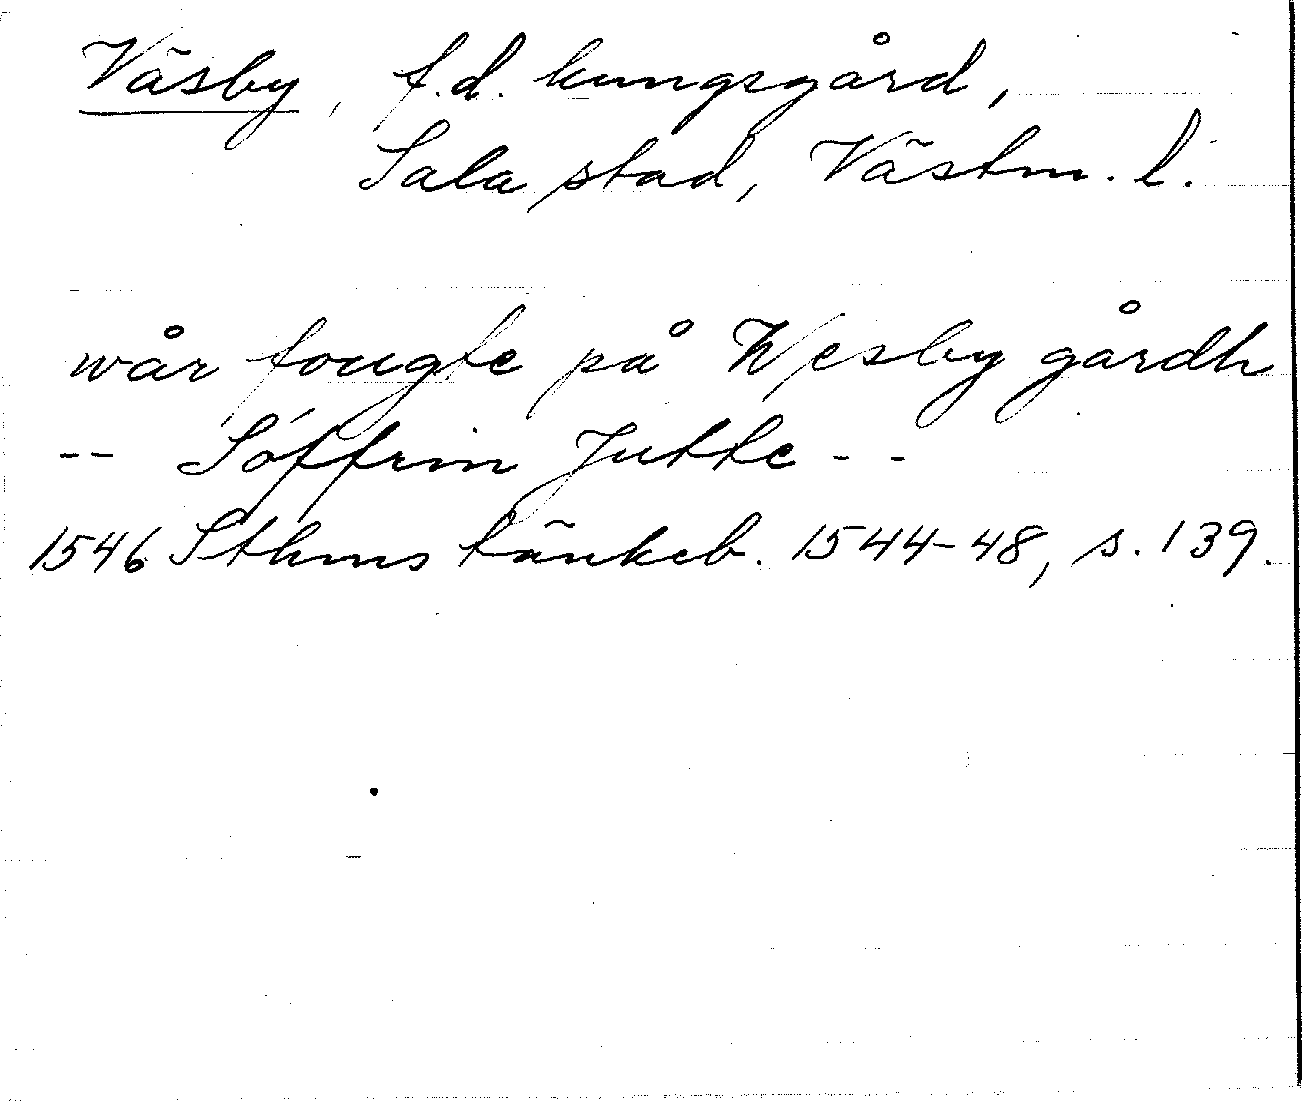 Väsby, f.d. kungsgård,
Sala stad, Västm. l.
wår fougte på Wesby gårdh
-- Söffrin Jutte --
1546 Sthms tänkeb. 1544-48, s. 139.